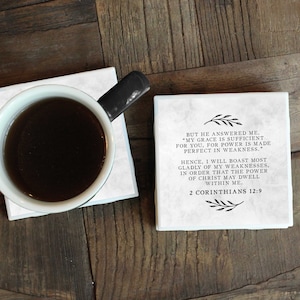 BUT HE ANSWERED ME,
"MY GRACE IS SUFFICIENT
FOR YOU, FOR POWER IS MADE
PERFECT IN WEAKNESS."
HENCE, I WILL BOAST MOST
GLADLY OF MY WEAKNESSES,
IN ORDER THAT THE POWER
OF CHRIST MAY DWELL
WITHIN ME.
2 CORINTHIANS 12:9